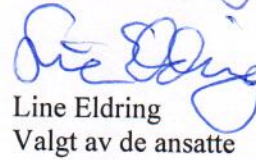 Line Eldring
Line Eldring
Valgt av de ansatte